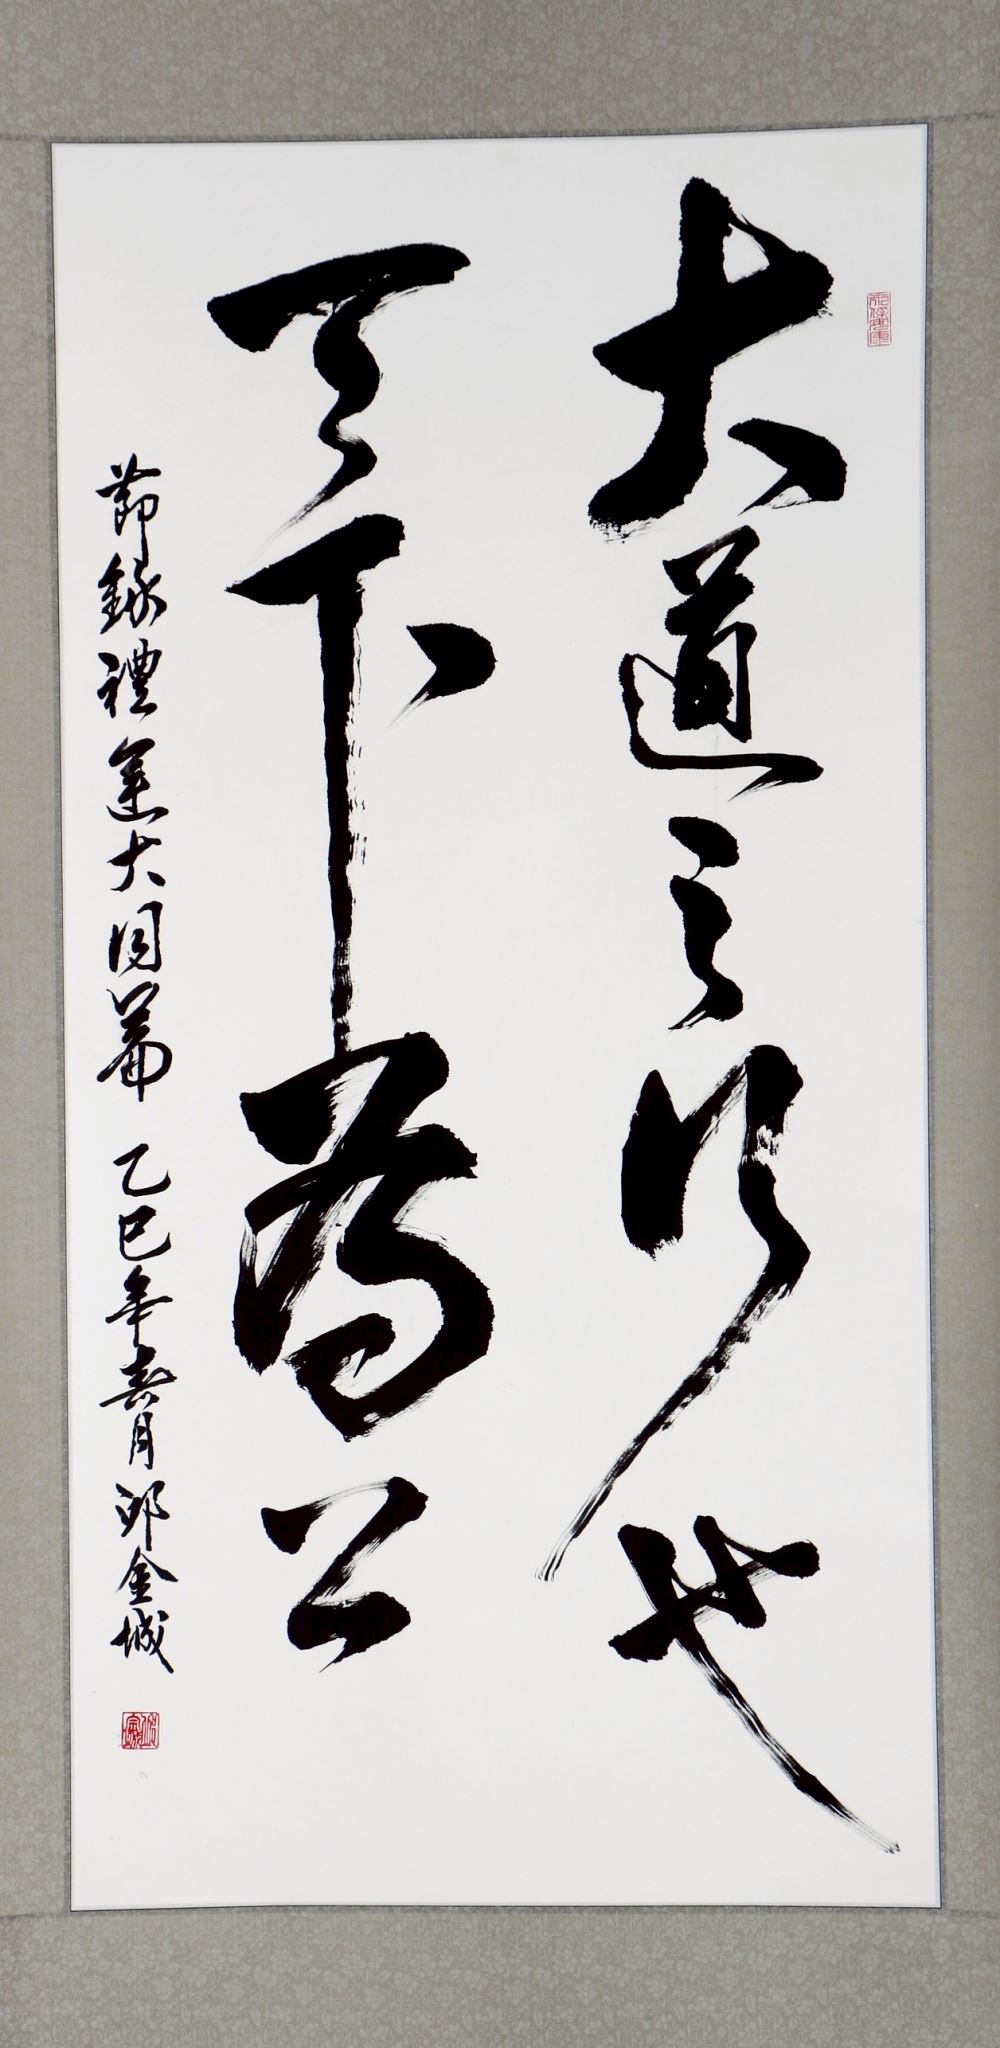 大道之行也
天下為公
節錄禮運大同篇 乙巳年春月 邱金城